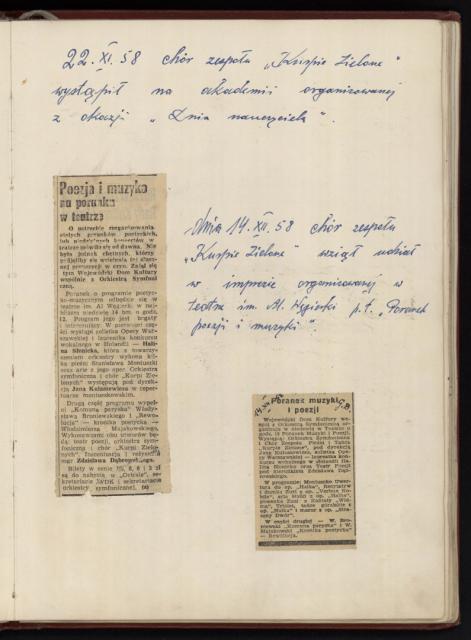 22.XI.58 chór zespołu „Kurpie Zielone"
wystąpił na akademii organizowanej
z okazji „Dnia nauczyciela".
Poezja i muzyka
na poranku
w teatrze
O potrzebie zorganizowania
stałych poranków poetyckich,
lub niedzielnych koncertów w
teatrze mówiło się od dawna. Nie
było jednak chętnych, którzy
podjęliby się wcielenia tej słusznej
propozycji w czyn. Zajął się
tym Wojewódzki Dom Kultury
wspólnie z Orkiestrą Symfoniczną.
Poranek o programie poetycko-muzycznym
odbędzie się w
teatrze im. Al Węgierki w najbliższą
niedzielę 14 bm. o godz.
12. Program jego jest bogaty
i interesujący. W pierwszej części
wystąpi solistka Opery Warszawskiej
i laureatka konkursu
wokalnego w Holandii — Halina
Słonicka, która z towarzyszeniem
orkiestry wykona kilka
pieśni Stanisława Moniuszki
oraz arie z jego oper. Orkiestra
symfoniczna i chór „Kurpi Zielonych"
wystąpią pod dyrekcją
Jana Kulaszewicza w repertuarze
moniuszkowskim.
Drugą część programu wypełni
„Komuna paryska" Władysława
Broniewskiego i „Rewolucja"
— kronika poetycka —
Włodzimierza Majakowskiego.
Wykonawcami obu utworów będą:
teatr poezji, orkiestra symfoniczna
i chór „Kurpi Zielonych".
Inscenizacja i reżyseria
Zdzisława Dąbrowskiego.
Bilety w cenie 10, 8, 6 i 3 zł
są do nabycia w „Orbisie", sekretariacie
WDK i sekretariacie
orkiestry symfonicznej.
Dnia 14.XII.58 chór zespołu
„Kurpie Zielone" wziął udział
w imprezie organizowanej w
teatrze im. Al. Węgierki p.t. Poranek
poezji i muzyki".
Poranek muzyki
i poezji
Wojewódzki Dom Kultury wespół
z Orkiestrą Symfoniczną organizuje
w niedzielę w Teatrze o
godz. 12 Poranek Muzyki i Poezji.
Wystąpią: Orkiestra Symfoniczna
i Chór Zespołu Pieśni i Tańca
„Kurpie Zielone", pod dyrekcją
Jana Kulaszewicza, solistka Opery
Warszawskiej — laureatka konkursu
wokalnego w Holandii Halina
Słonicka oraz Teatr Poezji
pod kierunkiem Zdzisława Dąbrowskiego.
W programie: Moniuszko Uwertura
do op. „Halka", Recytatyw
i dumka Zuzi z op. „Verbum Nobile",
aria Halki z op. „Halka",
piosenka Zosi z Kantaty „Widma",
Trzeciak, tańce góralskie z
op. „Halka" i mazur z op. „Straszny
Dwór".
W części drugiej — W. Broniewski
„Komuna paryska" i W.
Majakowski „Kronika poetycka"
— Rewolucja.